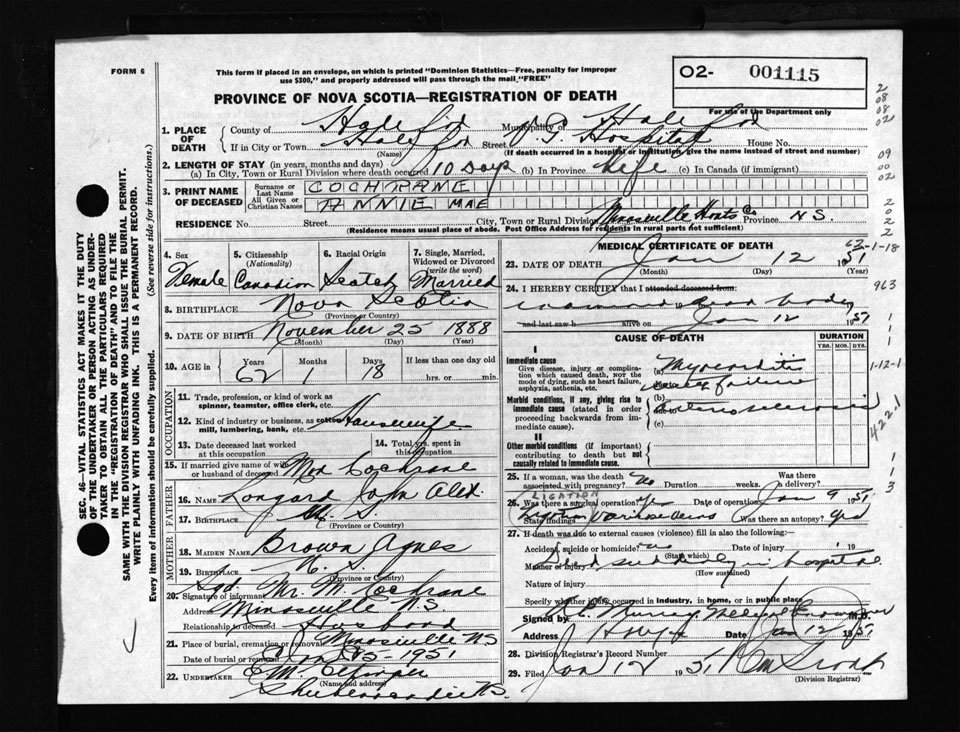 FORM 6
This form if placed in an envelope, on which is printed "Dominion Statistics—Free, penalty for improper
use $300," and properly addressed will pass through the mail, "FREE"
O2- 001115
For use of the Department only
PROVINCE OF NOVA SCOTIA—REGISTRATION OF DEATH
SEC. 46—VITAL STATISTICS ACT MAKES IT THE DUTY
OF THE UNDERTAKER OR PERSON ACTING AS UNDER-
TAKER TO OBTAIN ALL THE PARTICULARS REQUIRED
IN THE "REGISTRATION OF DEATH" AND TO FILE THE
SAME WITH THE DIVISION REGISTRAR WHO SHALL ISSUE THE BURIAL PERMIT.
WRITE PLAINLY WITH UNFADING INK. THIS IS A PERMANENT RECORD.
(See reverse side for instructions.)
Every item of information should be carefully supplied.
1. PLACE OF DEATH
County of Halifax Municipality of Halifax
If in City or Town Halifax Street V.G. Hospital House No.
(Name) (If death occurred in a hospital or institution give the name instead of street and number)
2. LENGTH OF STAY (in years, months and days)
(a) In City, Town or Rural Division where death occurred 10 days (b) In Province Life (c) In Canada (if immigrant)
3. PRINT NAME OF DECEASED
Surname or Last Name COCHRANE
All Given or Christian Names ANNIE MAE
RESIDENCE No. Street City, Town or Rural Division Minasville Hants Co Province N.S.
(Residence means usual place of abode. Post Office Address for residents in rural parts not sufficient)
4. Sex Female
5. Citizenship (Nationality) Canadian
6. Racial Origin Scotch
7. Single, Married, Widowed or Divorced (write the word) Married
8. BIRTHPLACE Nova Scotia
(Province or Country)
9. DATE OF BIRTH November 25 1888
(Month) (Day) (Year)
10. AGE in Years 62 Months 1 Days 18 If less than one day old hrs. or min.
OCCUPATION
11. Trade, profession, or kind of work as
spinner, teamster, office clerk, etc.
12. Kind of industry or business, as cotton
mill, lumbering, bank, etc. Housewife
13. Date deceased last worked at this occupation
14. Total yrs. spent in this occupation
15. If married give name of wife or husband of deceased Cochrane
FATHER
16. NAME Longard John Alex.
17. BIRTHPLACE N.S.
(Province or Country)
MOTHER
18. MAIDEN NAME Brown Agnes
19. BIRTHPLACE N.S.
(Province or Country)
20. Signature of informant Sgd. Mr. M. Cochrane
Address Minasville N.S
Relationship to deceased Husband
21. Place of burial, cremation or removal Minasville N.S
Date of burial or removal Jan 15-1951
22. UNDERTAKER
(Name and address)
Shubenacadie N.S.
MEDICAL CERTIFICATE OF DEATH
23. DATE OF DEATH Jan 12 1951
(Month) (Day) (Year)
24. I HEREBY CERTIFY that I attended deceased from
examined dead body
and last saw h alive on Jan 12 1951
CAUSE OF DEATH
DURATION
YRS. MOS. DYS.
I
Immediate cause
Give disease, injury or complica-
tion which caused death, nor the
mode of dying, such as heart failure,
asphyxia, asthenia, etc.
(a) Myocarditis
failure
Morbid conditions, if any, giving rise to
immediate cause (stated in order
proceeding backwards from im-
mediate cause).
(b) Arteriosclerosis
(c)
II
Other morbid conditions (if important)
contributing to death but not
causally related to immediate cause.
25. If a woman, was the death associated with pregnancy? No Duration weeks. Was there a delivery?
26. Was there a surgical operation? Yes Date of operation Jan 9 1951
LIGATION
State findings Was there an autopsy? yes
27. If death was due to external causes (violence) fill in also the following:
Accident, suicide or homicide? no Date of injury 19
(State which)
Manner of injury Died suddenly in hospital
(How sustained)
Nature of injury
Specify whether injury occurred in Industry, in home, or in public place
Signed by Murray Medical Examiner M.D.
Address Date Jan 12 1951
28. Division Registrar's Record Number
29. Filed Jan 12 1951
(Division Registrar)
62-1-18
963
1-12-1
422